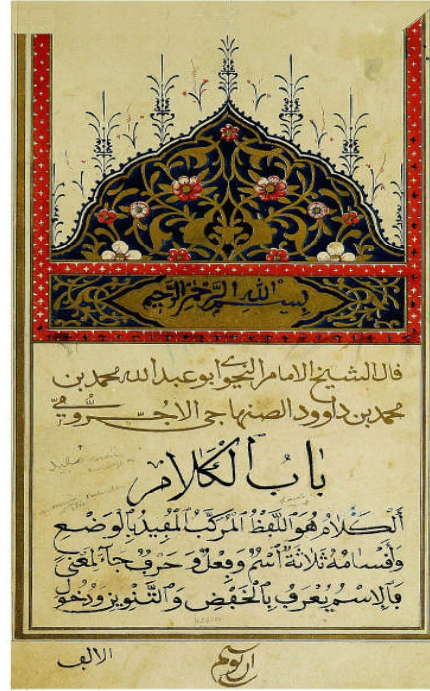 بسم الله الرحمن الرحيم
قال الشيخ الامام النحوي ابو عبد الله محمد بن
محمد بن داوود الصنهاجي الاجرومي
بَابُ الْكَلَامِ
اَلْكَلَامُ هُوَ اللَّفْظُ الْمُرَكَّبُ الْمُفِيدُ بِالْوَضْعِ
وَأَقْسَامُهُ ثَلَاثَةٌ اسْمٌ وَفِعْلٌ وَحَرْفٌ جَاءَ لِمَعْنًى
فَالِاسْمُ يُعْرَفُ بِالْخَفْضِ وَالتَّنْوِينِ وَدُخُولِ
الالف